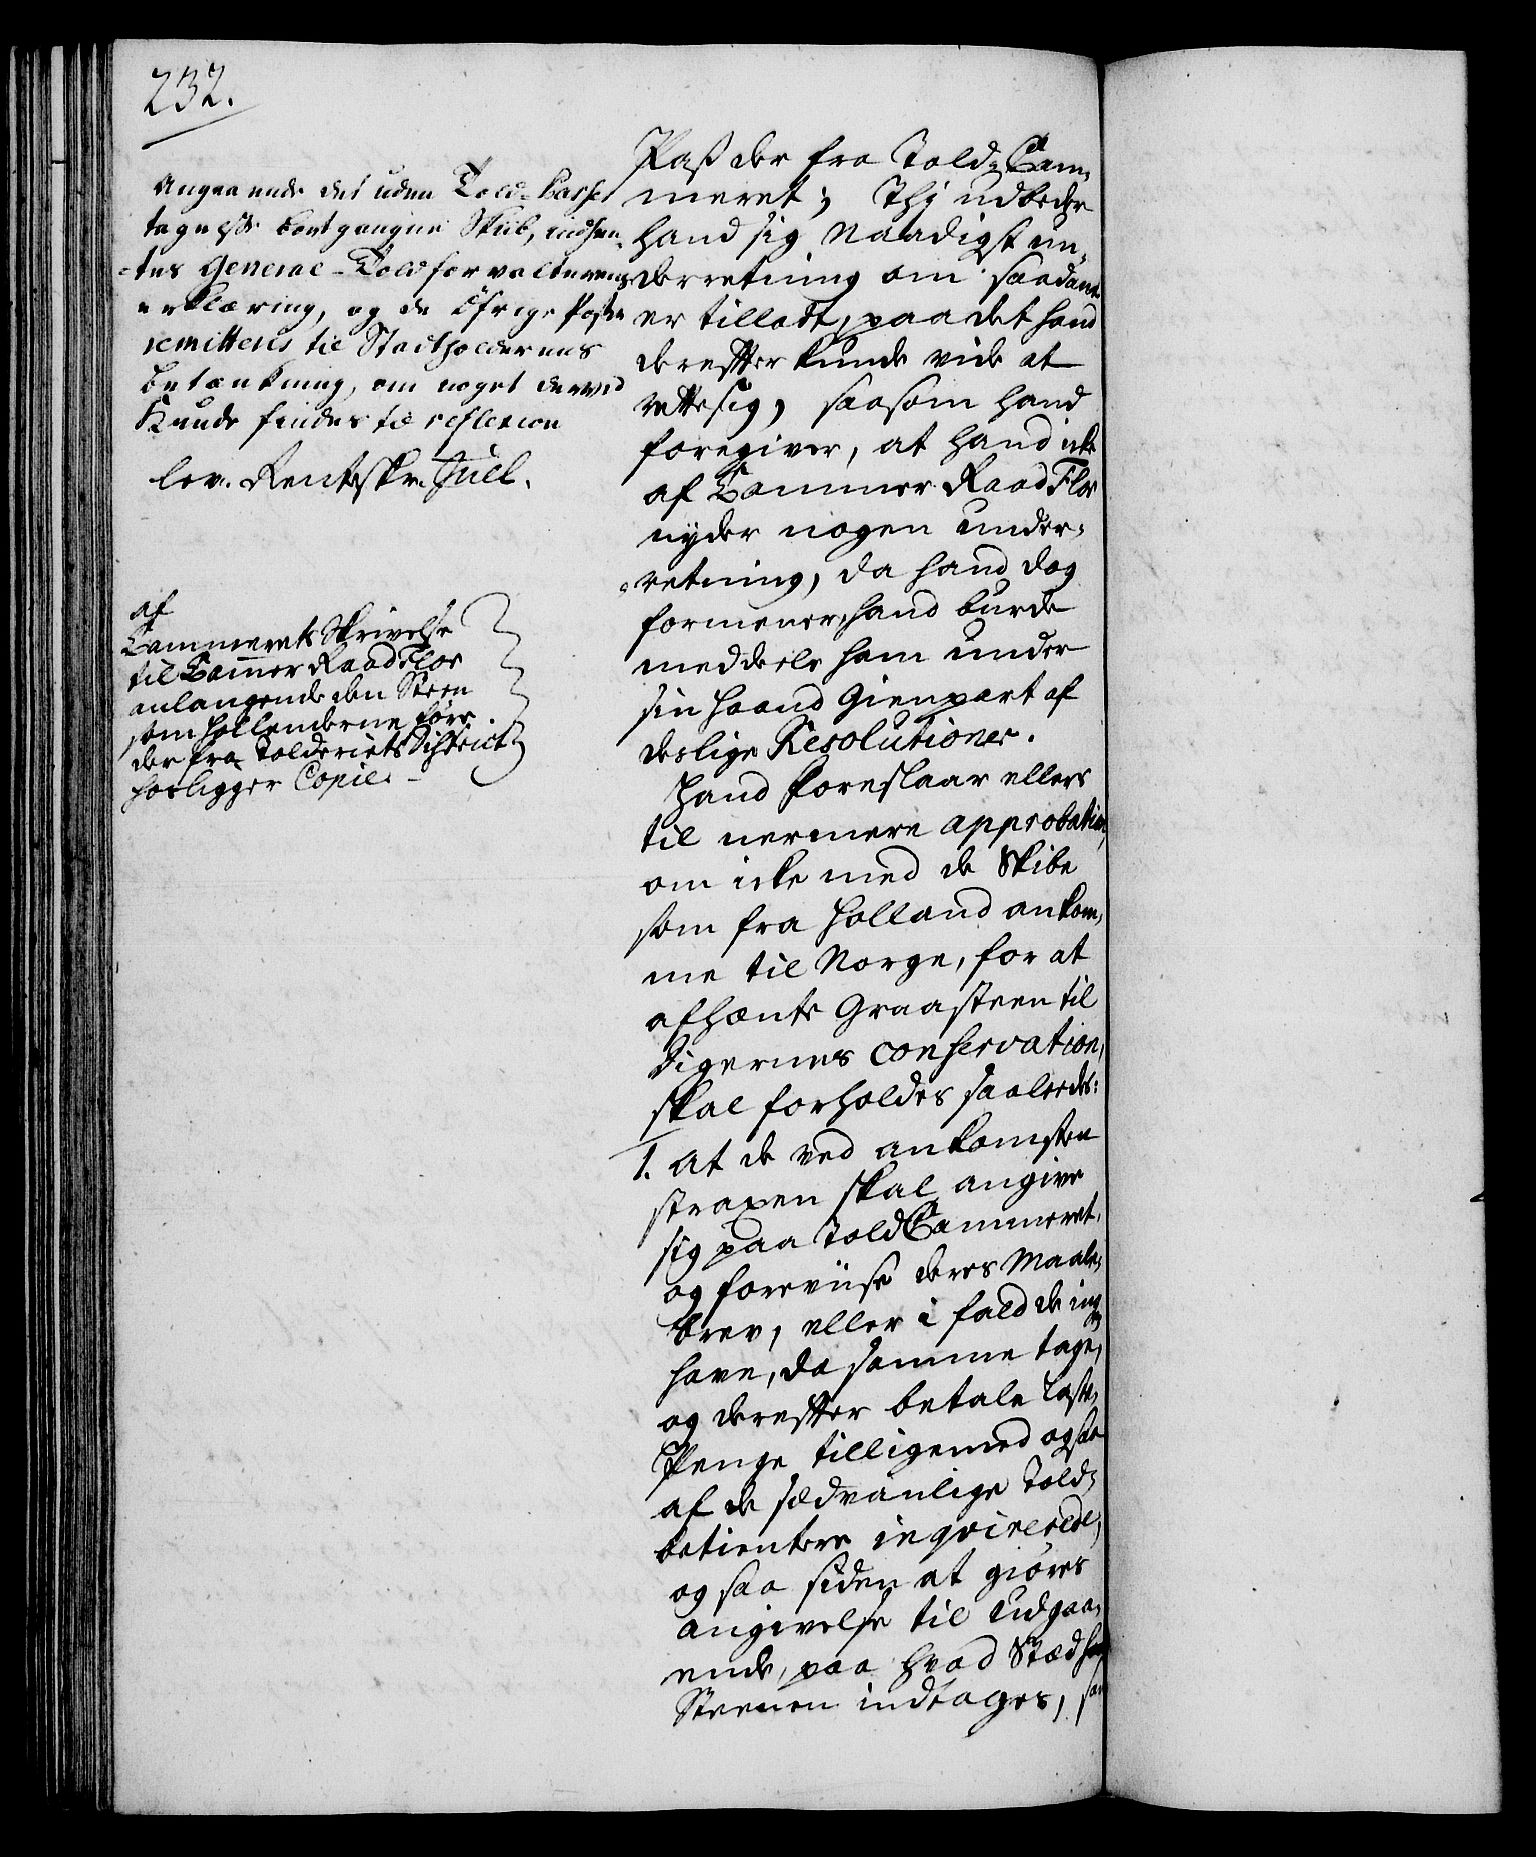 232.
Angaaende det uden Told-Casse
tagelse bortgangne Skib, indhen-
-tes General-Toldforvalterens
erklæring, og de öfrige Poster
remitteris til Stadtholderens
betænkning, om noget derved
Kunde findes til reflexion
lev. Renteskr. Juel.
af
Cammerets Skrivelse
til Cammer Raad Flor
anlangende den Steen
som Hollenderne före
der fra Tolderiets District
hosligger Copie.
Pass der fra Told-Cam-
meret; Thj udbeder
hand sig Naadigst un-
derretning om saadant
er tilladt, paa det hand
derefter kunde vide at
rette sig, saasom hand
foregiver, at hand icke
af Cammer Raad Flor
nyder nogen under-
-retning, da hand dog
formener, hand burde
meddeele ham under
sin haand Gienpart af
deslige Resolutioner.
Hand foreslaar ellers
til nermere approbation,
om icke med de Skibe
som fra Holland ankom-
me til Norge, for at
afhente Graasteen til
Digernes conservation,
skal forholdes saaledes:
1. at de ved ankomsten
straxen skal angive
sig paa Told Cammeret,
og foreviise deres Maale-
brev, eller i fald de ing
have, da samme tage,
og derefter betale Laste-
Penge tilligemed ogsaa
af de sædvanlige Told-
betientere inqvirerede,
og saa siden at giöres
angivelse til udgaa-
ende, paa hvad Stæd
Steenen indtages,